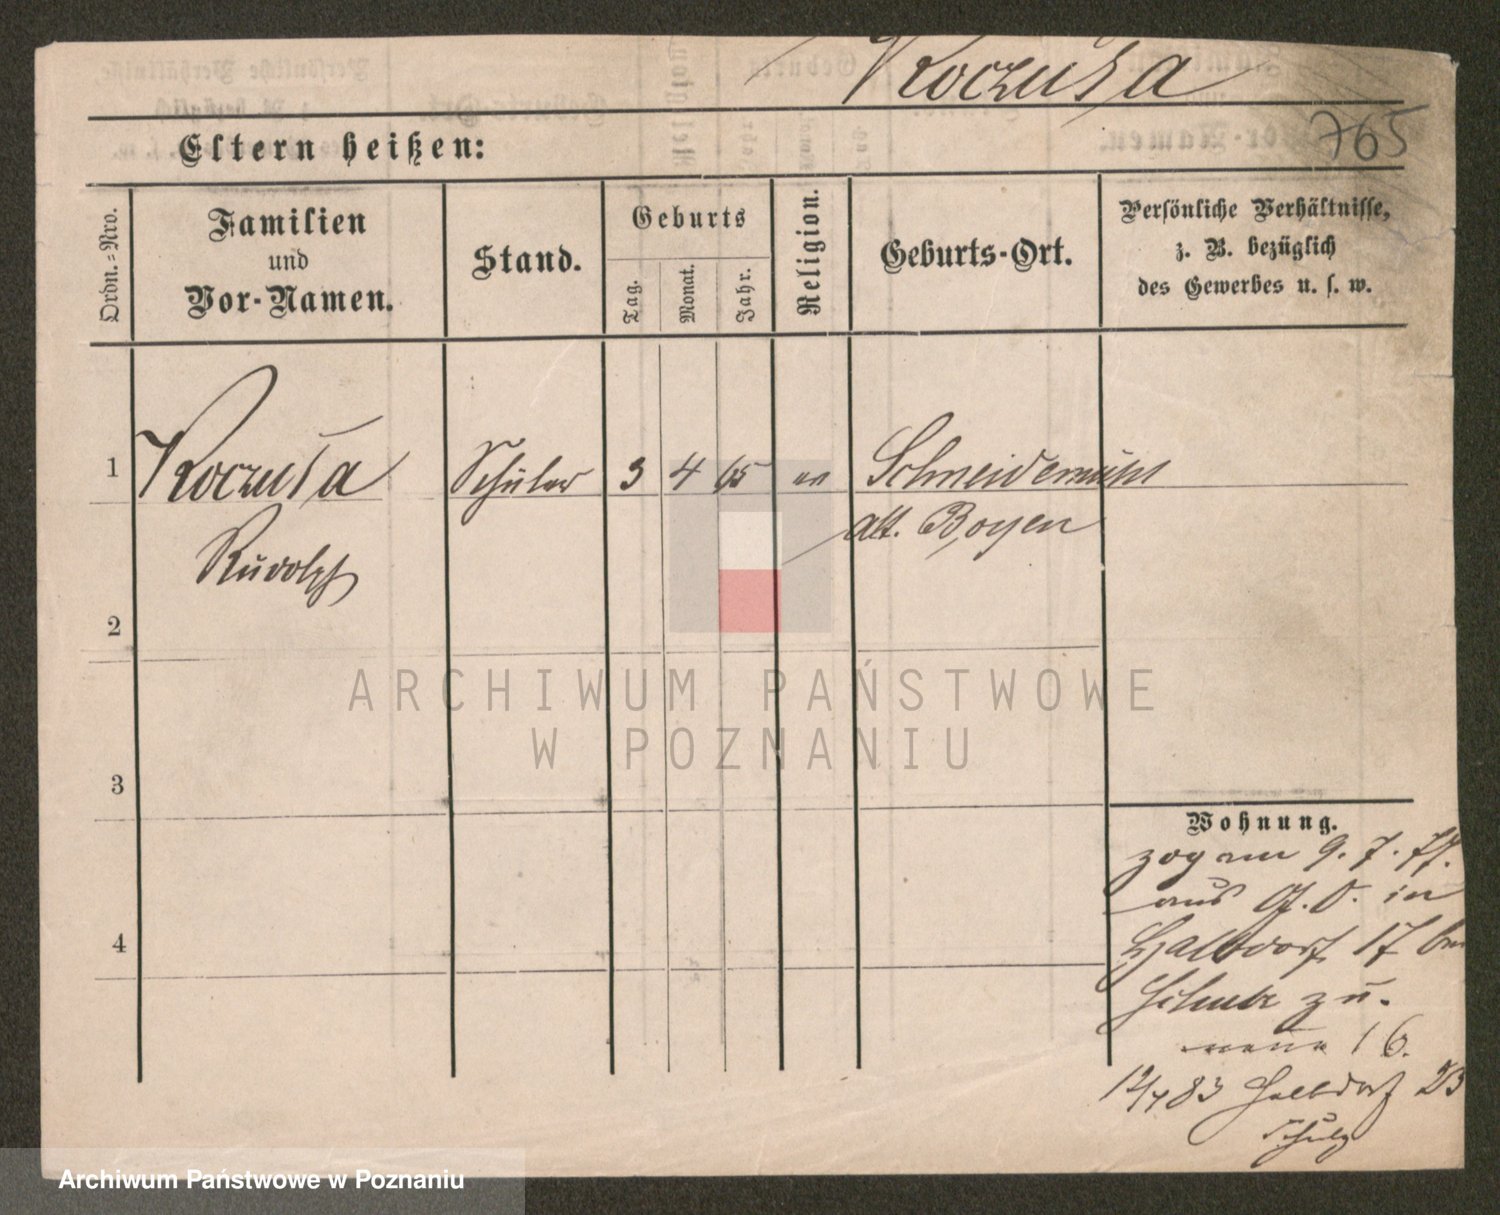 Koczula
765
Eltern heißen:
Ordn.=Nro.
Familien
und
Vor-Namen.
Stand.
Geburts
Tag.
Monat.
Jahr.
Religion.
Geburts-Ort.
Persönliche Verhältnisse,
z. B. bezüglich
des Gewerbes u. s. w.
1 Koczula Schüler 3 4 65 Schneidemühl
Rudolph
2
3
4
Wohnung.
zog am 9. 7. 77.
aus in
Halbdorf 17
zu.
neue 16.
83 Halbdorf 23
Schulz
ARCHIWUM PAŃSTWOWE
W POZNANIU
Archiwum Państwowe w Poznaniu